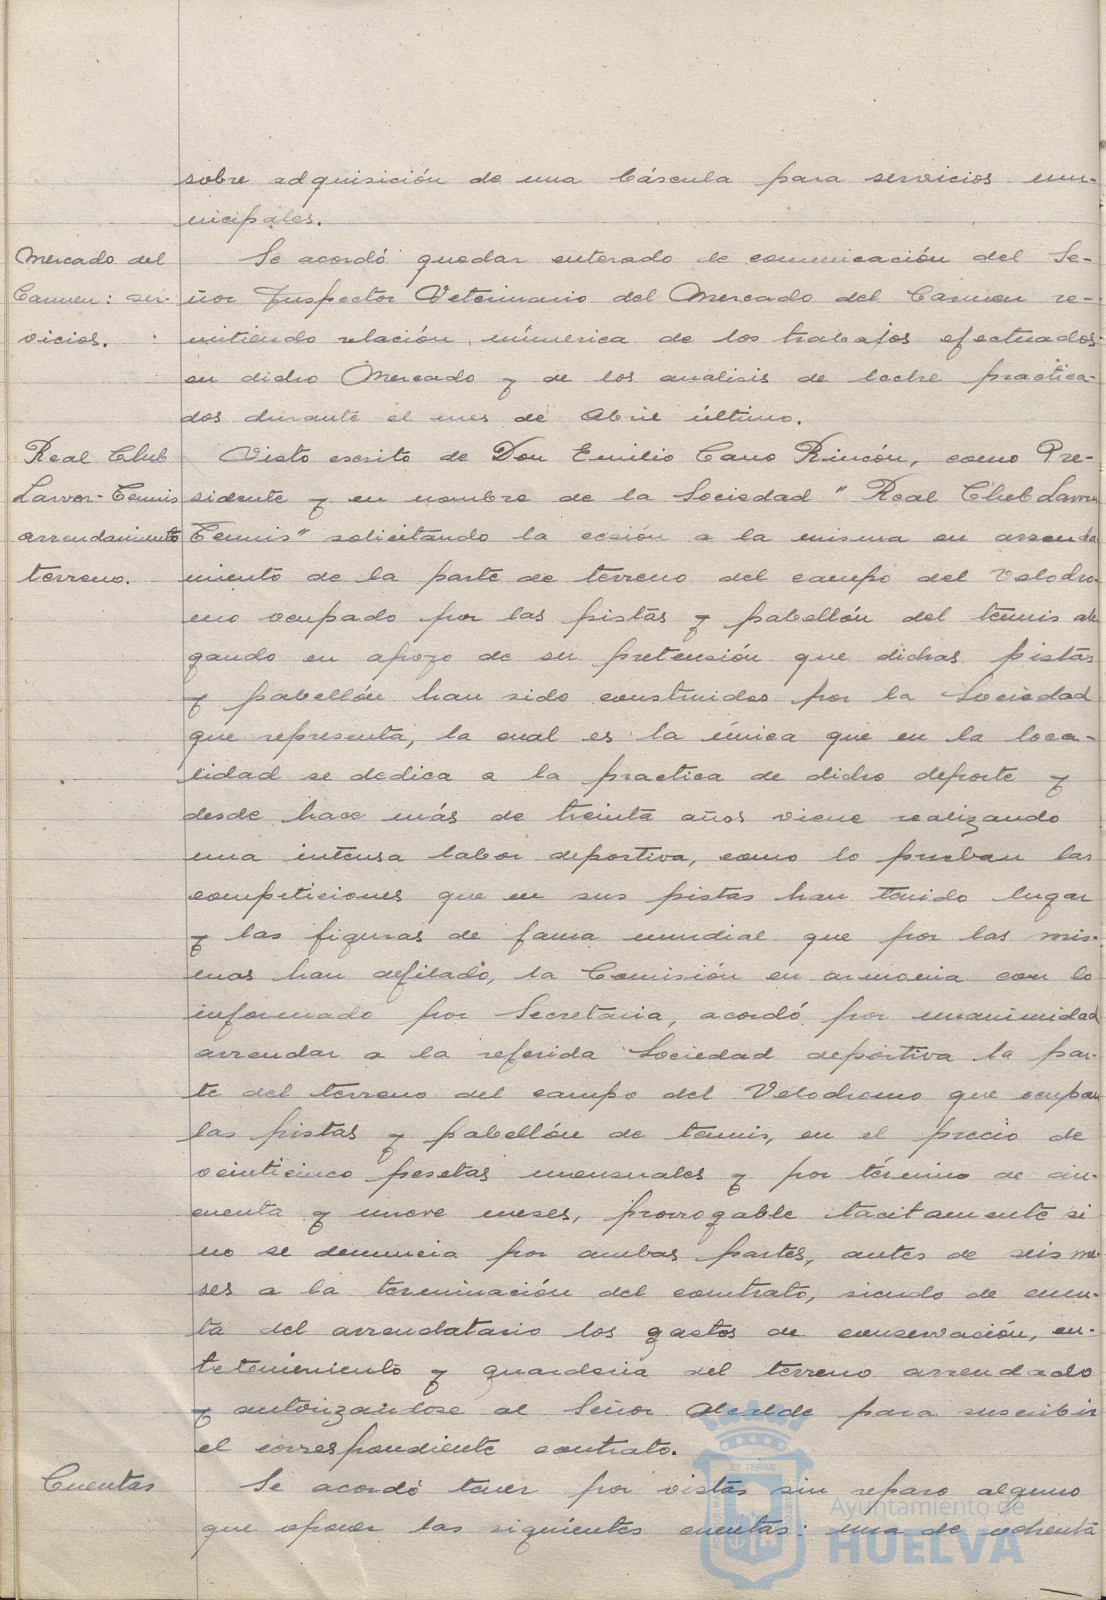 sobre adquisición de una báscula para servicios mu-
nicipales.
Mercado del
Carmen: ser-
vicios.
Se acordó quedar enterado de comunicación del Se-
ñor Inspector Veterinario del Mercado del Carmen re-
mitiendo relación númerica de los trabajos efectuados
en dicho Mercado y de los analisis de leche practica-
dos durante el mes de Abril último.
Real Club
Lawn-Tennis
arrendamiento
terreno.
Visto escrito de Don Emilio Cano Rincón, como Pre-
sidente y en nombre de la Sociedad "Real Club Lawn
Tennis" solicitando la cesión a la misma en arrenda
miento de la parte de terreno del campo del Velódro
mo ocupado por las pistas y pabellón del tennis ale
gando en apoyo de su pretensión que dichas pistas
y pabellón han sido construidos por la Sociedad
que representa, la cual es la única que en la loca-
lidad se dedica a la practica de dicho deporte y
desde hace más de treinta años viene realizando
una intensa labor deportiva, como lo prueban las
competiciones que en sus pistas han tenido lugar
y las figuras de fama mundial que por las mis-
mas han desfilado, la Comisión en armonia con lo
informado por Secretaria, acordó por unanimidad
arrendar a la referida Sociedad deportiva la par-
te del terreno del campo del Velodromo que ocupan
las pistas y pabellón de tennis, en el precio de
veinticinco pesetas mensuales y por término de cin-
cuenta y nueve meses, prorrogable tacitamente si
no se denuncia por ambas partes, antes de seis me-
ses a la terminación del contrato, siendo de cuen-
ta del arrendatario los gastos de conservación, en-
tretenimiento y guarderia del terreno arrendado
y autorizandose al Señor Alcalde para suscribir
el correspondiente contrato.
Cuentas
Se acordó tener por vistas sin reparo alguno
que oponer las siguientes cuentas: una de ochenta
Ayuntamiento de
HUELVA